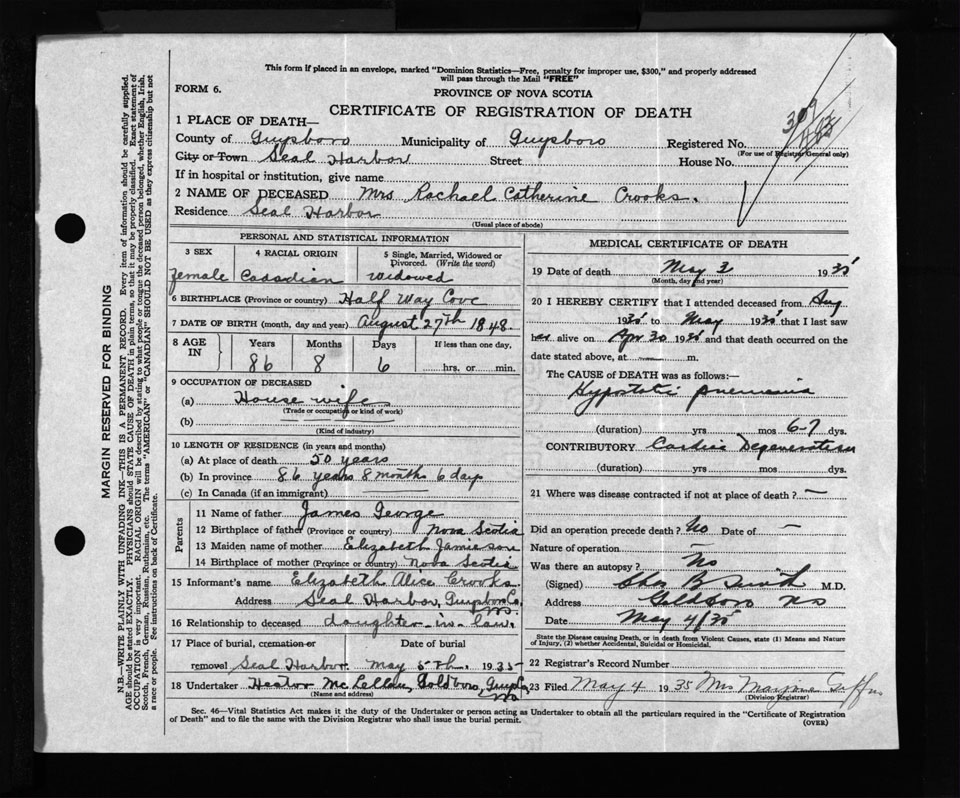 This form if placed in an envelope, marked "Dominion Statistics—Free, penalty for improper use, $300," and properly addressed
will pass through the Mail "FREE"
FORM 6.
PROVINCE OF NOVA SCOTIA
CERTIFICATE OF REGISTRATION OF DEATH
1 PLACE OF DEATH—
County of Guysboro Municipality of Guysboro Registered No.
(For use of Registrar General only)
City or Town Seal Harbor Street House No.
If in hospital or institution, give name
2 NAME OF DECEASED Mrs Rachael Catherine Crooks.
Residence Seal Harbor
(Usual place of abode)
PERSONAL AND STATISTICAL INFORMATION
3 SEX 4 RACIAL ORIGIN 5 Single, Married, Widowed or
Divorced. (Write the word)
female Canadien widowed
6 BIRTHPLACE (Province or country) Half Way Cove
7 DATE OF BIRTH (month, day and year) August 27th 1848.
8 AGE IN Years Months Days If less than one day,
86 8 6 hrs. or min.
9 OCCUPATION OF DECEASED
(a) House wife
(Trade or occupation or kind of work)
(b)
(Kind of industry)
10 LENGTH OF RESIDENCE (in years and months)
(a) At place of death 50 years
(b) In province 86 years 8 month 6 days
(c) In Canada (if an immigrant)
Parents
11 Name of father James George
12 Birthplace of father (Province or country) Nova Scotia
13 Maiden name of mother Elizabeth Jamieson
14 Birthplace of mother (Province or country) Nova Scotia
15 Informant's name Elizabeth Alice Crooks
Address Seal Harbor, Guysboro Co. NS.
16 Relationship to deceased daughter-in-law.
17 Place of burial, cremation or Date of burial
removal Seal Harbor. May 5th. 1935-
18 Undertaker McLellan, Goldboro, Guys Co, NS
(Name and address)
MEDICAL CERTIFICATE OF DEATH
19 Date of death May 3 1935
(Month, day and year)
20 I HEREBY CERTIFY that I attended deceased from Aug
1935 to May 1935 that I last saw
her alive on Apr 30 1935 and that death occurred on the
date stated above, at — m.
The CAUSE of DEATH was as follows:—
Hypostatic pneumonia
(duration) yrs mos 6-7 dys.
CONTRIBUTORY Cardiac Degeneration
(duration) yrs mos dys.
21 Where was disease contracted if not at place of death? —
Did an operation precede death? No Date of —
Nature of operation —
Was there an autopsy? No
(Signed) Chas B Smith M.D.
Address Goldboro NS
Date May 4/35
State the Disease causing Death, or in death from Violent Causes, state (1) Means and Nature
of Injury, (2) whether Accidental, Suicidal or Homicidal.
22 Registrar's Record Number
23 Filed May 4 1935 Mrs
(Division Registrar)
Sec. 46—Vital Statistics Act makes it the duty of the Undertaker or person acting as Undertaker to obtain all the particulars required in the "Certificate of Registration
of Death" and to file the same with the Division Registrar who shall issue the burial permit.
(OVER)
MARGIN RESERVED FOR BINDING
N.B.—WRITE PLAINLY WITH UNFADING INK—THIS IS A PERMANENT RECORD. Every item of information should be carefully supplied.
AGE should be stated EXACTLY. PHYSICIANS should STATE CAUSE OF DEATH in plain terms, so that it may be properly classified. Exact statement of
OCCUPATION is very important. RACIAL ORIGIN will be described by stating to what people or tongue the deceased person belonged, whether English, Irish,
Scotch, French, German, Russian, Ruthenian, etc. The terms "AMERICAN" or "CANADIAN" SHOULD NOT BE USED as they express citizenship but not
a race or people. See instructions on back of Certificate.